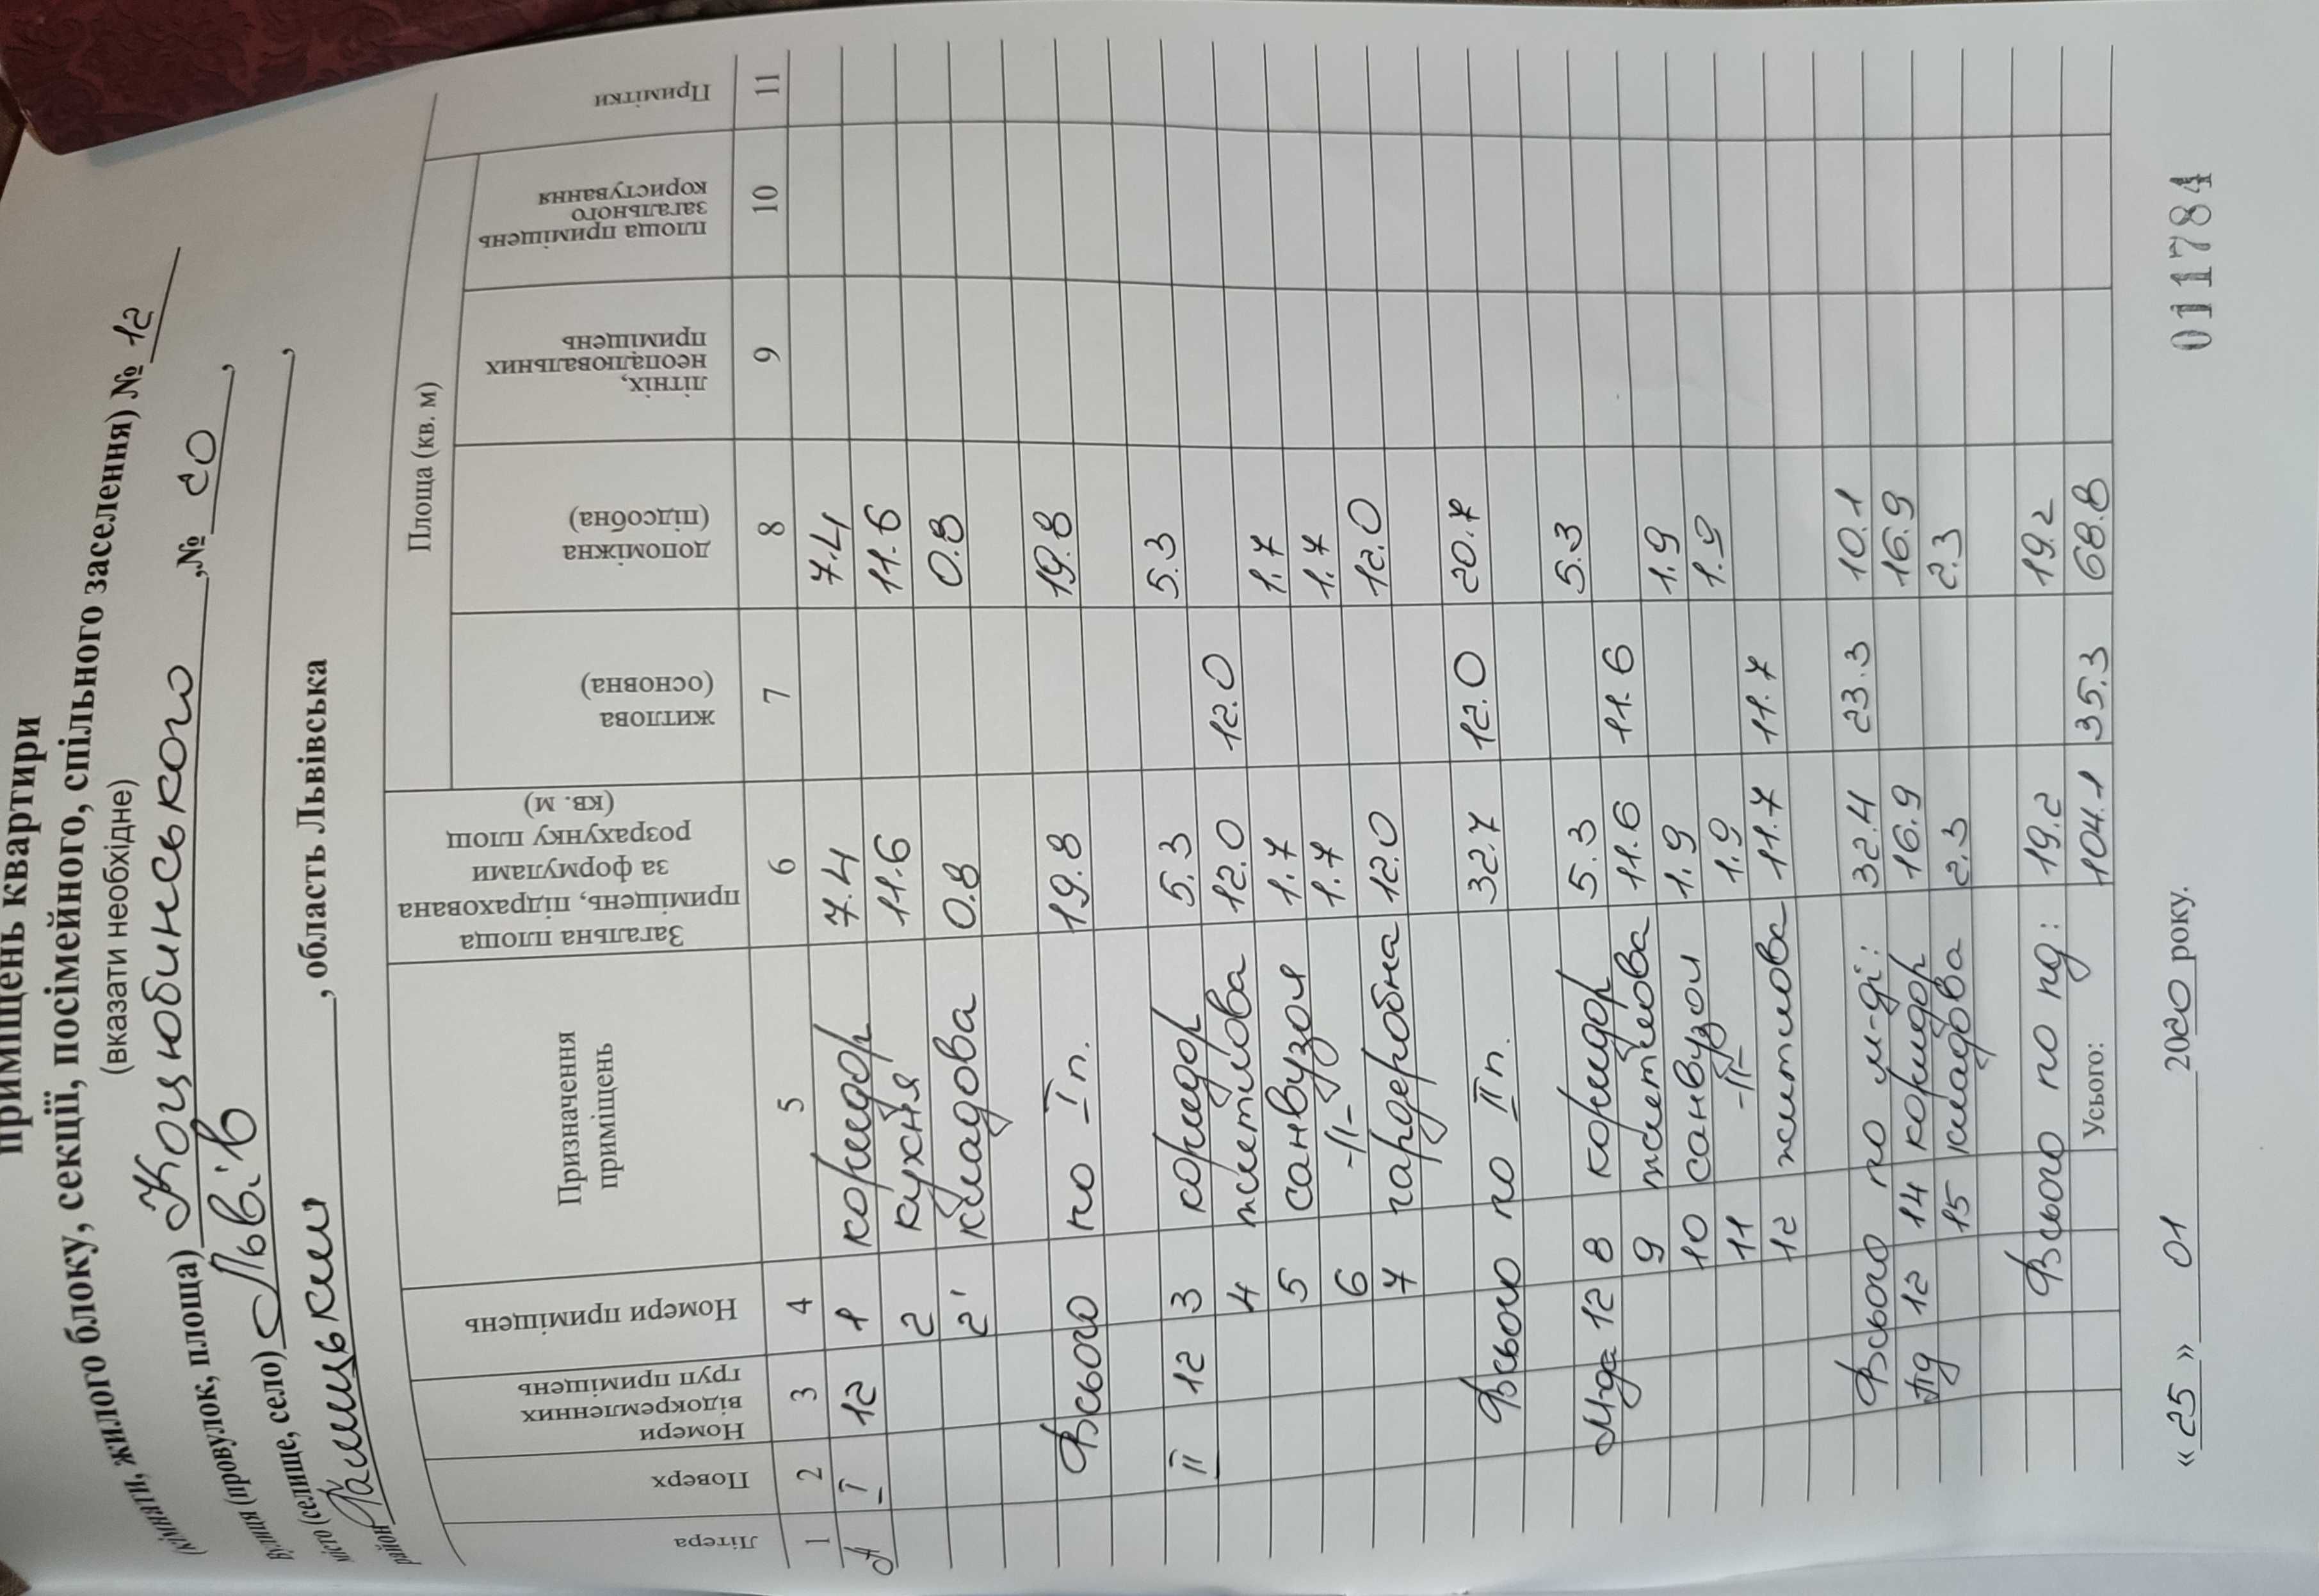 приміщень квартири
(кімнати, жилого блоку, секції, посімейного, спільного заселення) № 12
(вказати необхідне)
вулиця (провулок, площа) Коцюбинського, № 20,
місто (селище, село) Львів,
район Галицький, область Львівська
Літера
Поверх
Номери відокремлених груп приміщень
Номери приміщень
Призначення приміщень
Загальна площа приміщень, підрахована за формулами розрахунку площ (кв. м)
Площа (кв. м)
житлова (основна)
допоміжна (підсобна)
літніх, неопалювальних приміщень
площа приміщень загального користування
Примітки
1 2 3 4 5 6 7 8 9 10 11
А I 12 1 коридор 7.4 7.4
2 кухня 11.6 11.6
2' кладова 0.8 0.8
Всього по I п. 19.8 19.8
II 12 3 коридор 5.3 5.3
4 житлова 12.0 12.0
5 санвузол 1.7 1.7
6 -II- 1.7 1.7
7 гардеробна 12.0 12.0
Всього по II п. 32.7 12.0 20.7
М-да 12 8 коридор 5.3 5.3
9 житлова 11.6 11.6
10 санвузол 1.9 1.9
11 -II- 1.9 1.9
12 житлова 11.7 11.7
Всього по м-ді: 32.4 23.3 10.1
Пд 12 14 коридор 16.9 16.9
15 кладова 2.3 2.3
Всього по пд: 19.2 19.2
Усього: 104.1 35.3 68.8
«25» 01 2020 року.
011784